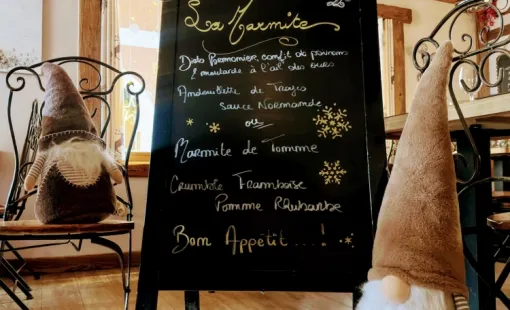 La Marmite
Dips Parmentier, confit de poivrons
& moutarde à l'ail des ours
Andouillette de Troyes
Sauce Normande
ou
Marmite de Tomme
Crumble Framboise
Pomme Rhubarbe
Bon Appétit...!